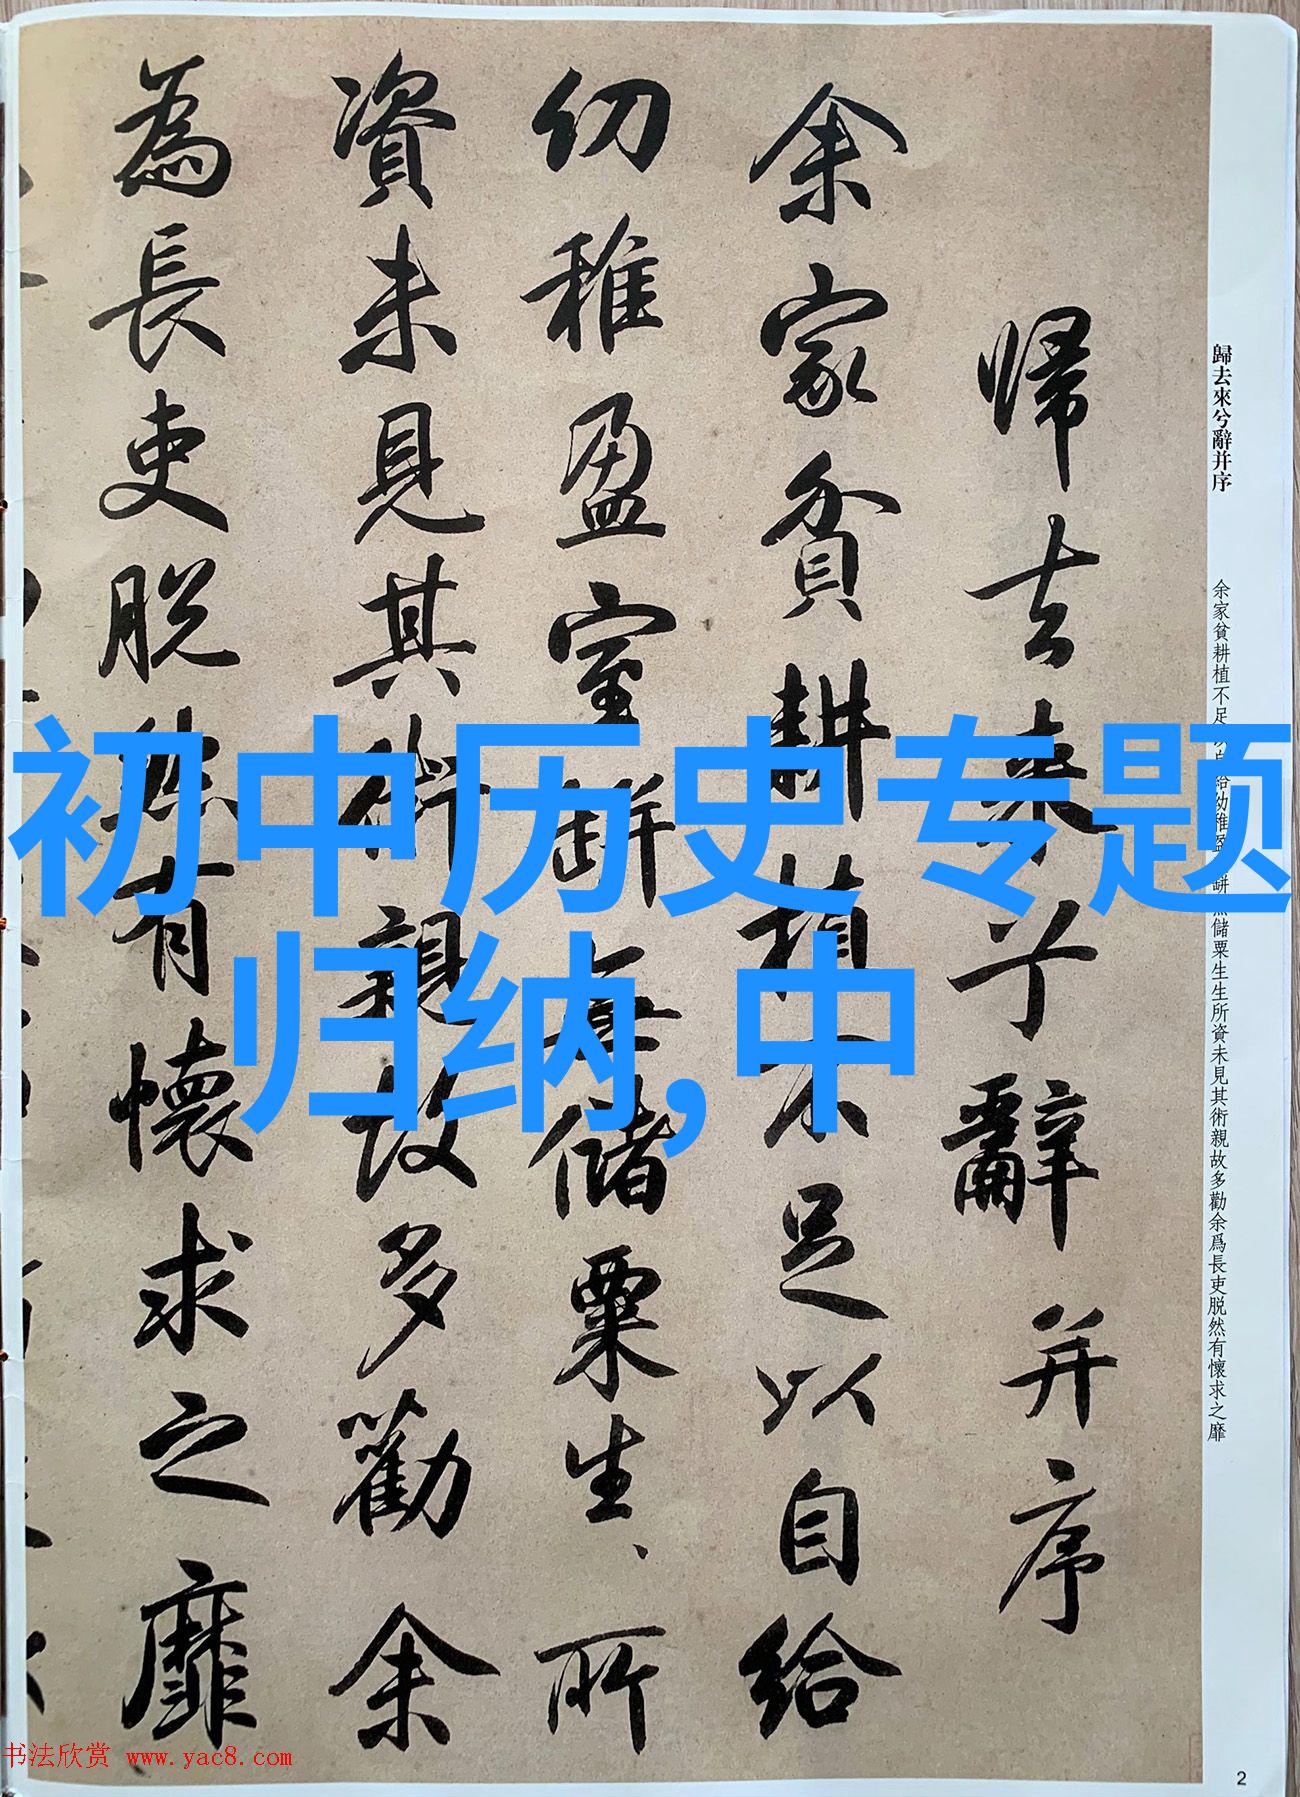 歸去來兮辭并序
余家貧耕植不足以自給
幼稚盈室缾無儲粟生、所
資未見其術親故多勸余
為長吏脱然有懷求之靡
歸去來兮辭并序
余家貧耕植不足以自給幼稚盈室缾無儲粟生生所資未見其術親故多勸余爲長吏脱然有懷求之靡
初中历史专题
归纳,中
书法欣赏 www.yac8.com
2